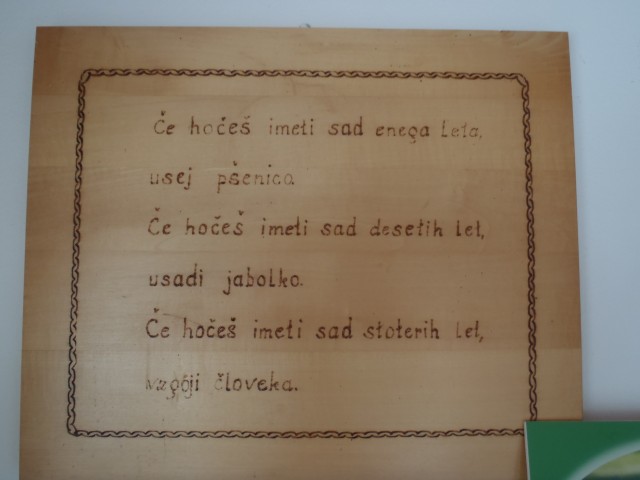 Če hočeš imeti sad enega leta,
usej pšenico
Če hočeš imeti sad desetih let,
usadi jabolko.
Če hočeš imeti sad stoterih let,
vzgoji človeka.